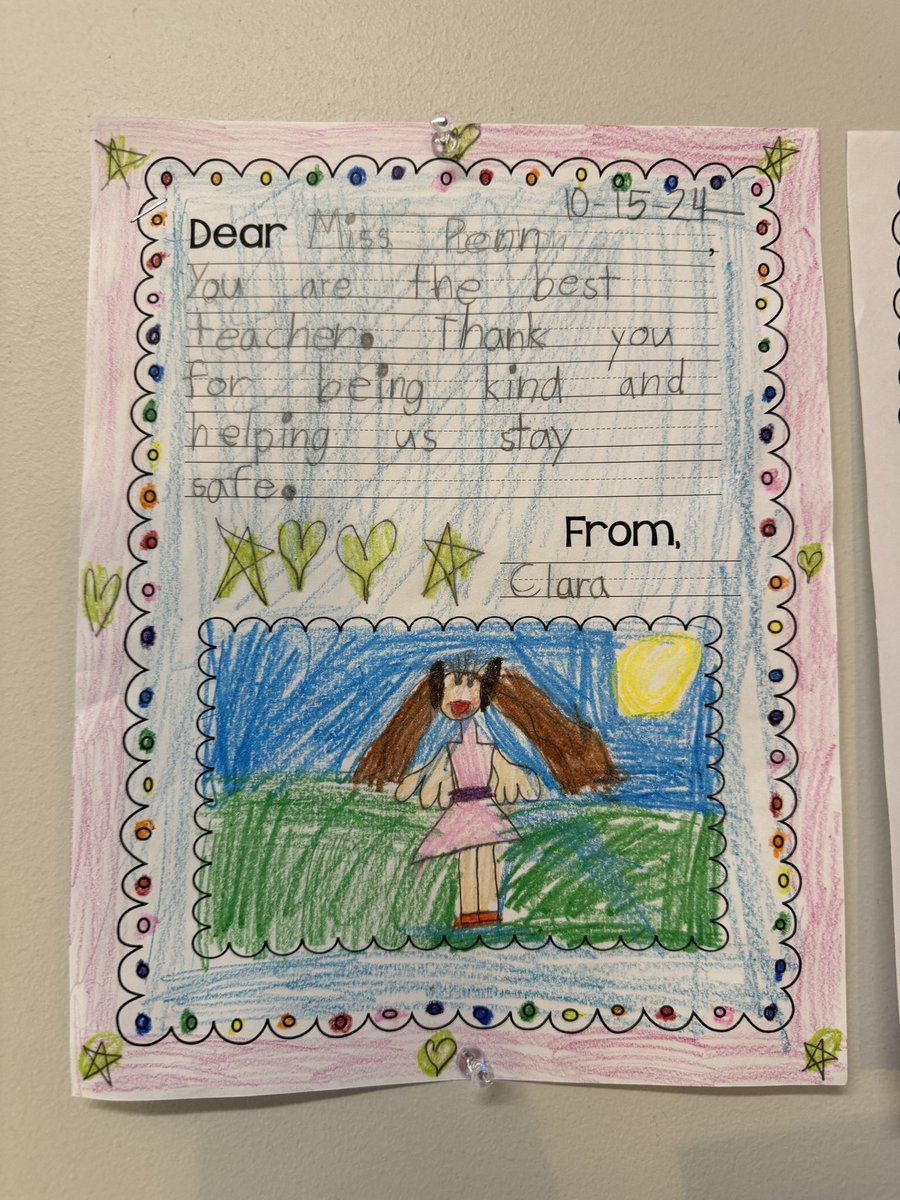 10-15-24
Dear Miss Penn,
You are the best
teacher. Thank you
for being kind and
helping us stay
safe.
From,
Clara